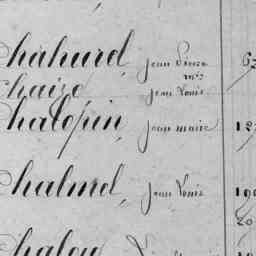 Chahurel, jean Pierre
Chaize jean Louis
Chalopin, jean marie 12
Chalmel, jean Louis 190
20
Chalou